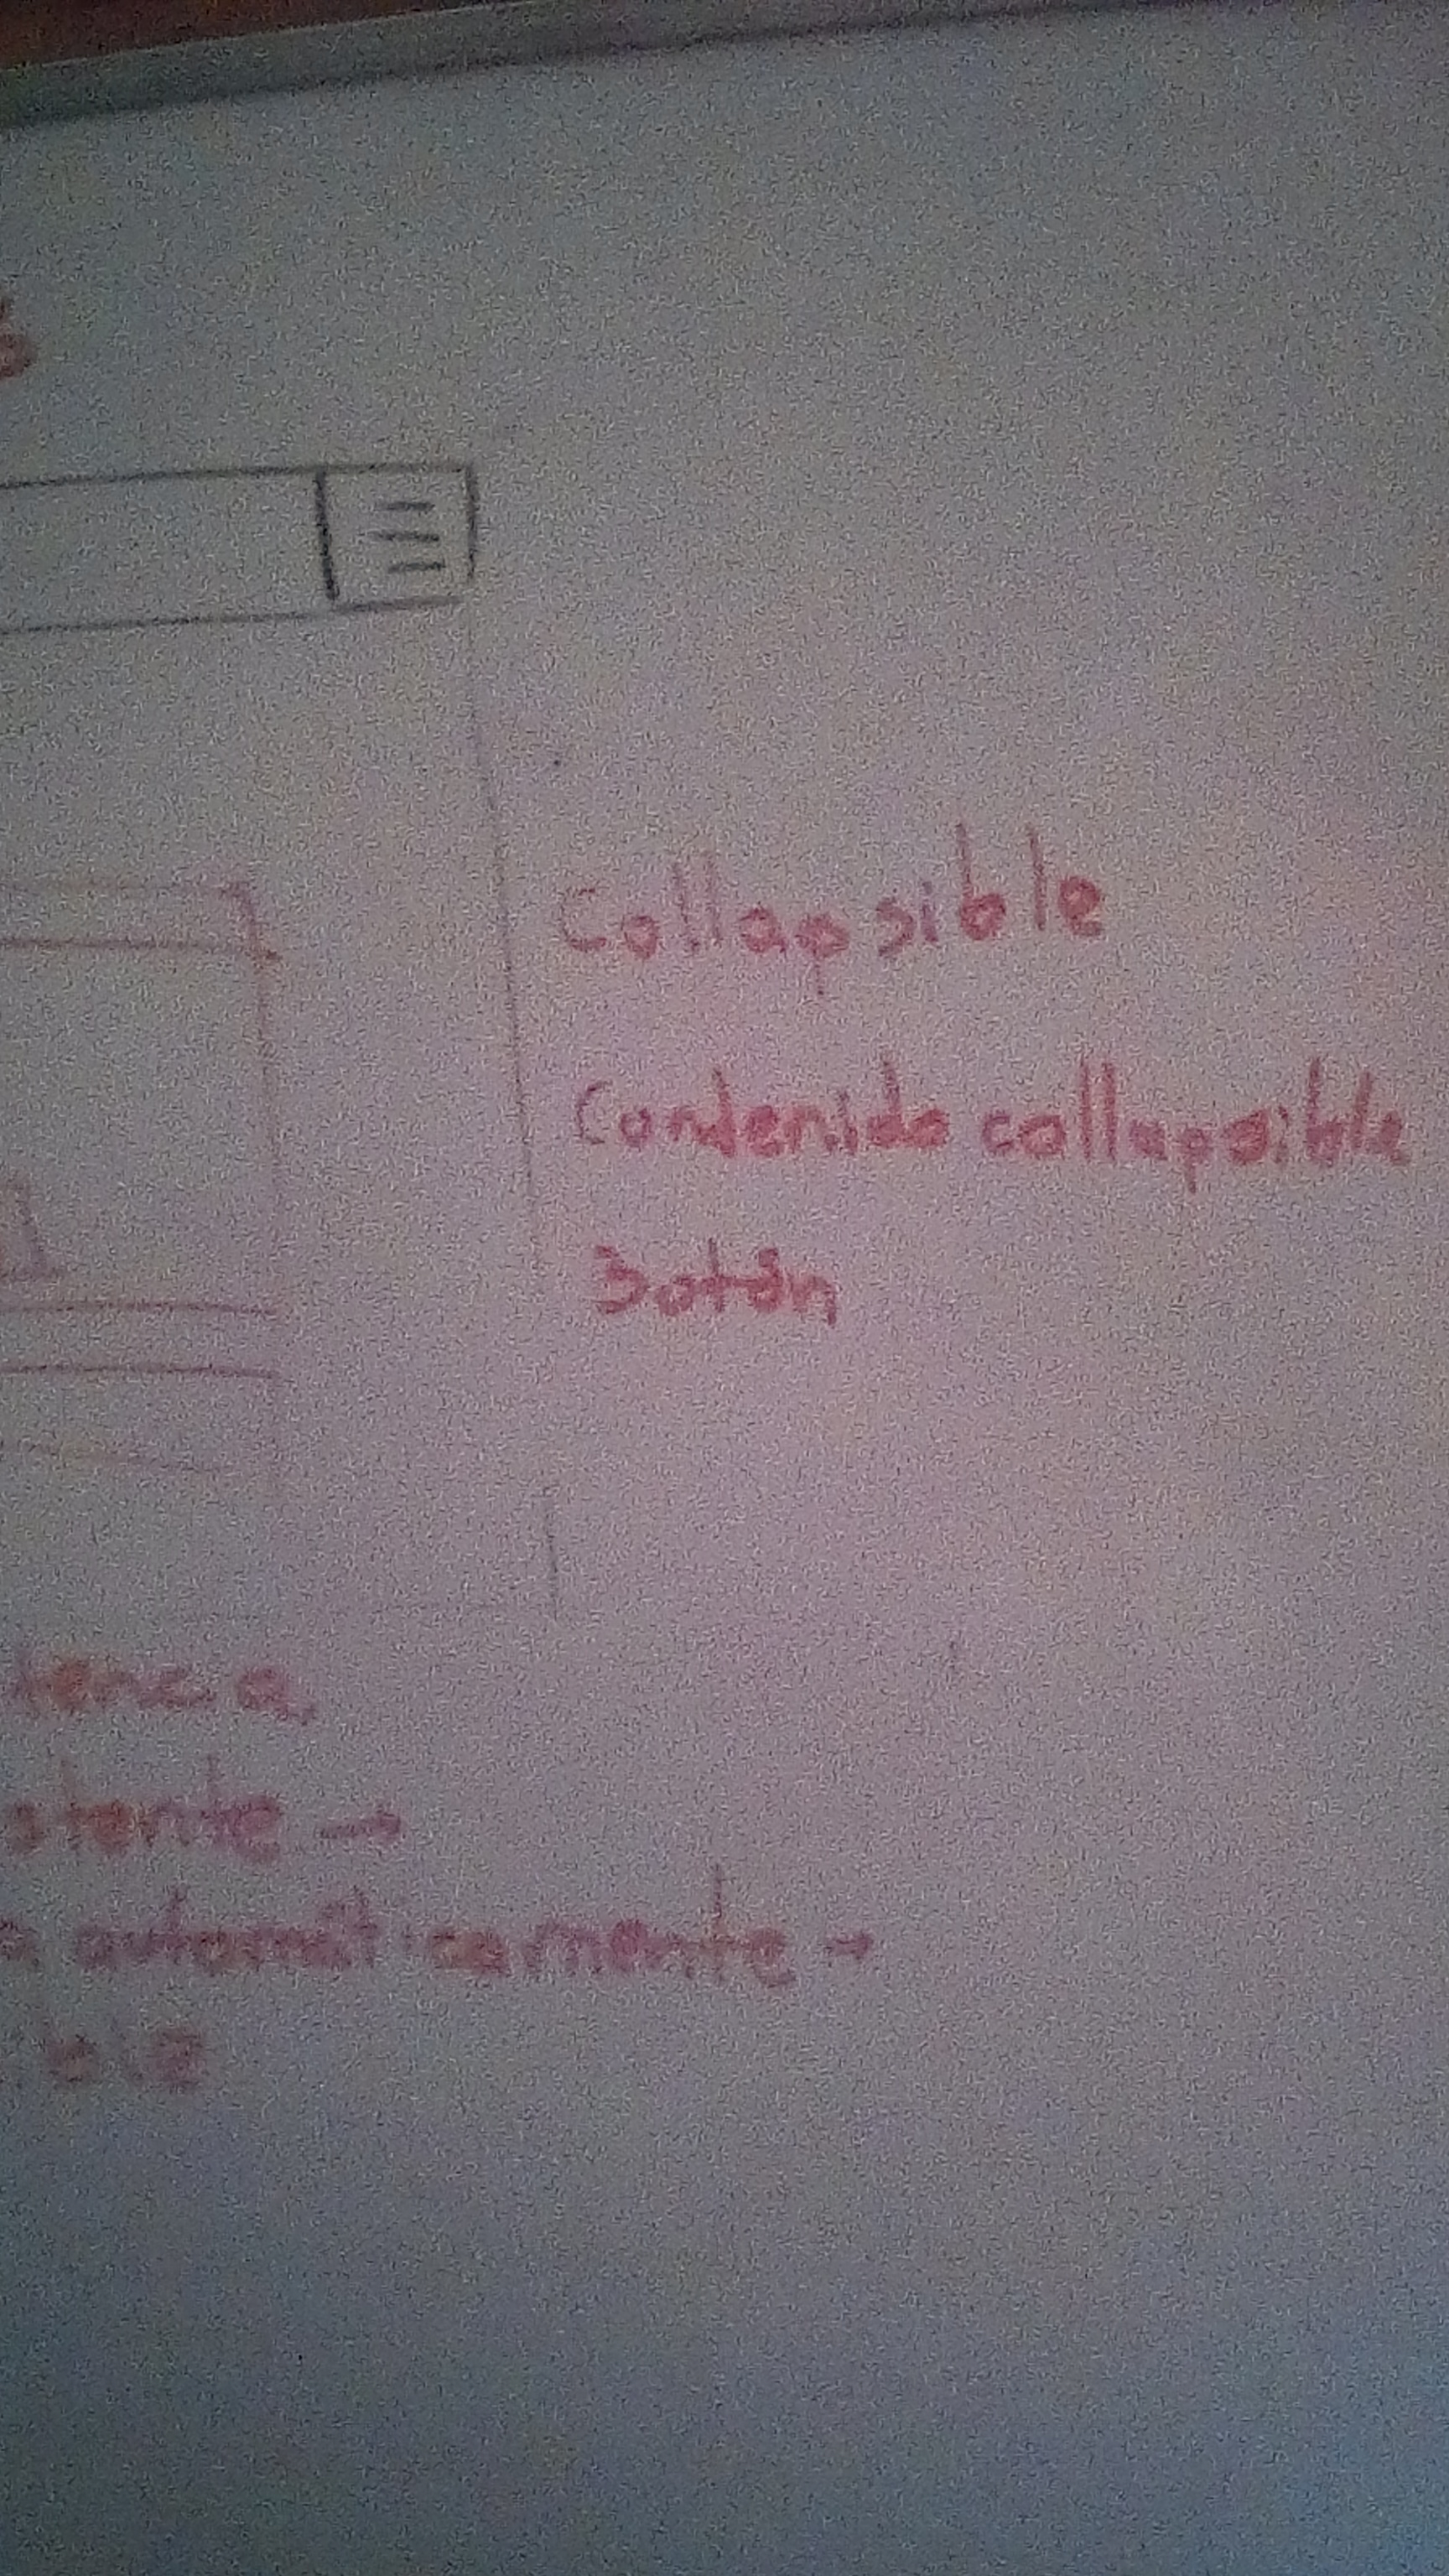 Collapsible
Contenido collapsible
Botón
stente →
automáticamente →